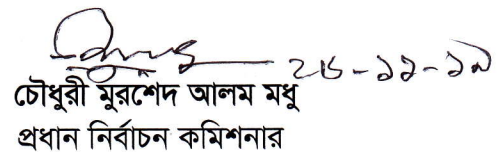 ২৮-১১-১৯
চৌধুরী মুরশেদ আলম মধু
প্রধান নির্বাচন কমিশনার